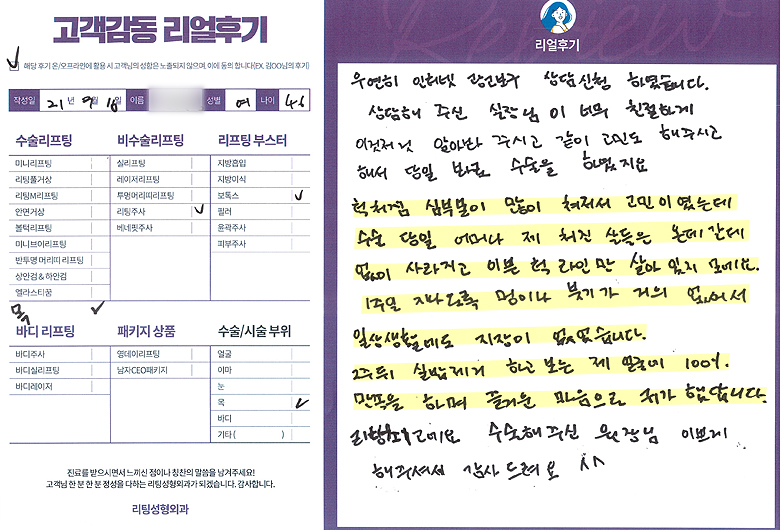 고객감동 리얼후기
해당 후기 온/오프라인에 활용 시 고객님의 성함은 노출되지 않으며, 이에 동의 합니다(EX. 김OO님의 후기)
작성일 21년 9월 18일 이름 성별 여 나이 46
수술리프팅
미니리프팅
리팅풀거상
리팅M리프팅
안면거상
볼턱리프팅
미니브이리프팅
반투명 머리띠 리프팅
상안검 & 하안검
엘라스티꿈
목
비수술리프팅
실리프팅
레이저리프팅
투명머리띠리프팅
리팅주사
베네핏주사
리프팅 부스터
지방흡입
지방이식
보톡스
필러
윤곽주사
피부주사
바디 리프팅
바디주사
바디실리프팅
바디레이저
패키지 상품
영데이리프팅
남자CEO패키지
수술/시술 부위
얼굴
이마
눈
목
바디
기타( )
진료를 받으시면서 느끼신 점이나 칭찬의 말씀을 남겨주세요!
고객님 한 분 한 분 정성을 다하는 리팅성형외과가 되겠습니다. 감사합니다.
리팅성형외과
리얼후기
우연히 인터넷 광고보구 상담신청 하였습니다.
상담해 주신 실장님이 너무 친절하게
이것저것 알아봐 주시고 같이 고민도 해주시고
해서 당일 바로 수술을 하였지요
턱처짐 심부볼이 많이 쳐져서 고민이였는데
수술 당일 어머나 제 쳐진 살들은 온데간데
없이 사라지고 이쁜 턱라인만 살아 있지 모에요.
1주일 지나도록 멍이나 붓기가 거의 없어서
일상생활에도 지장이 없었습니다.
2주뒤 실밥제거 하고 보는 제 얼굴에 100%
만족을 하며 즐거운 마음으로 귀가 했답니다.
최고에요 수술해주신 원장님 이쁘게
해주셔서 감사드려요 ^^